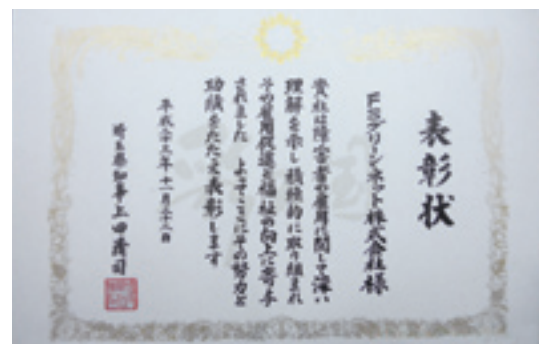 表彰状
FSグリーンネット株式会社様
貴社は障害者の雇用に関して深い
理解を示し積極的に取り組まれ
その雇用促進と福祉の向上に寄与
されました よってここにその努力と
功績をたたえ表彰します
平成二十三年十一月二十二日
埼玉県知事上田清司